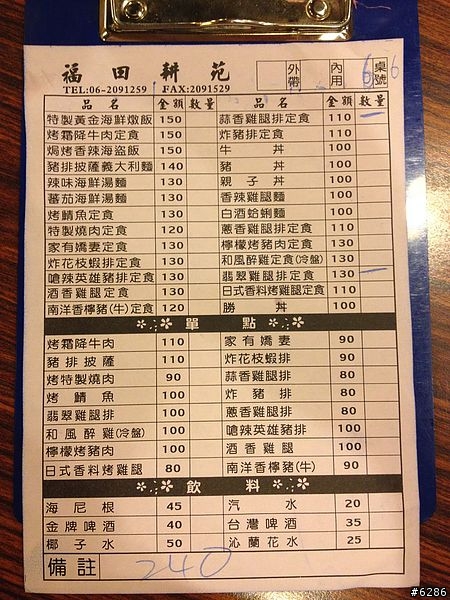 福田耕苑 外帶 內用 桌號 6 6
TEL:06-2091259 FAX:2091529
品名 金額 數量 品名 金額 數量
特製黃金海鮮燉飯 150 蒜香雞腿排定食 110
烤霜降牛肉定食 150 炸豬排定食 110
焗烤香辣海盜飯 150 牛丼 100
豬排披薩義大利麵 140 豬丼 100
辣味海鮮湯麵 130 親子丼 100
蕃茄海鮮湯麵 130 香辣雞腿麵 100
烤鯖魚定食 130 白酒蛤蜊麵 100
特製燒肉定食 120 蔥香雞腿排定食 110
家有嬌妻定食 130 檸檬烤豬肉定食 130
炸花枝蝦排定食 130 和風醉雞定食(冷盤) 130
嗆辣英雄豬排定食 130 翡翠雞腿排定食 130
酒香雞腿定食 130 日式香料烤雞腿定食 110
南洋香檸豬(牛)定食 120 勝丼 100
單點
烤霜降牛肉 110 家有嬌妻 90
豬排披薩 110 炸花枝蝦排 90
烤特製燒肉 90 蒜香雞腿排 80
烤鯖魚 100 炸豬排 80
翡翠雞腿排 100 蔥香雞腿排 80
和風醉雞(冷盤) 100 嗆辣英雄豬排 100
檸檬烤豬肉 100 酒香雞腿 100
日式香料烤雞腿 80 南洋香檸豬(牛) 90
飲料
海尼根 45 汽水 20
金牌啤酒 40 台灣啤酒 35
椰子水 50 沁蘭花水 25
備註 240
#6286